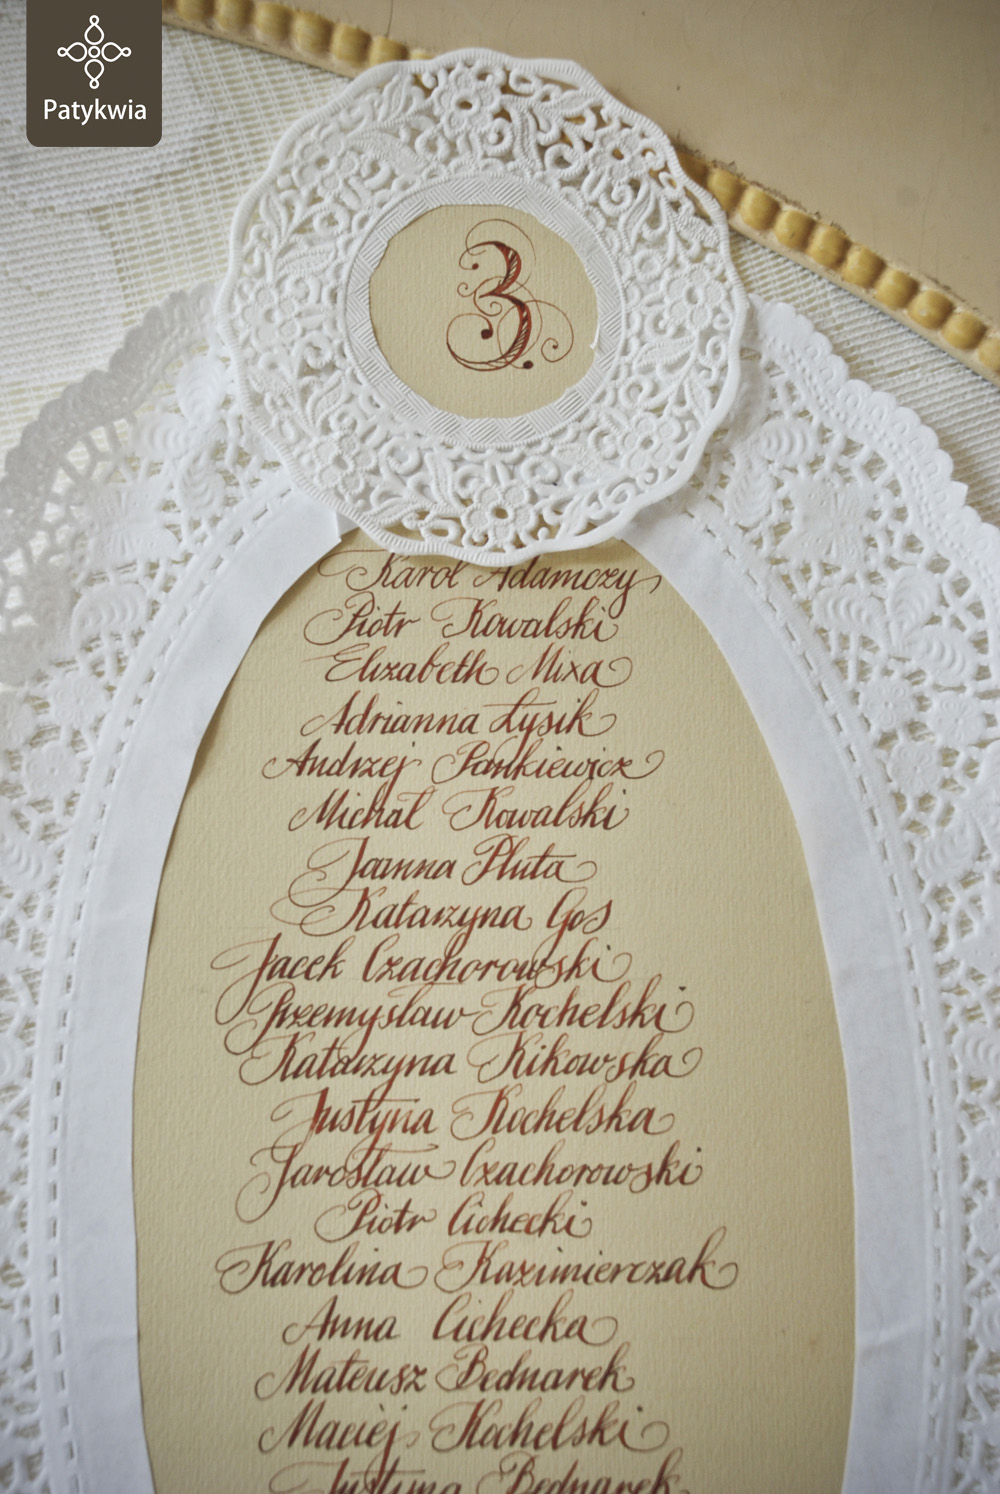 Patykwia
3.
Karol Adamczy
Piotr Kowalski
Elizabeth Mixa
Adrianna Łysik
Andrzej Pankiewicz
Michał Kowalski
Joanna Pluta
Katarzyna Gos
Jacek Czachorowski
Przemysław Kochelski
Katarzyna Kikowska
Justyna Kochelska
Jarosław Czachorowski
Piotr Cichecki
Karolina Kazimierczak
Anna Cichecka
Mateusz Bednarek
Maciej Kochelski
Justyna Bednarek